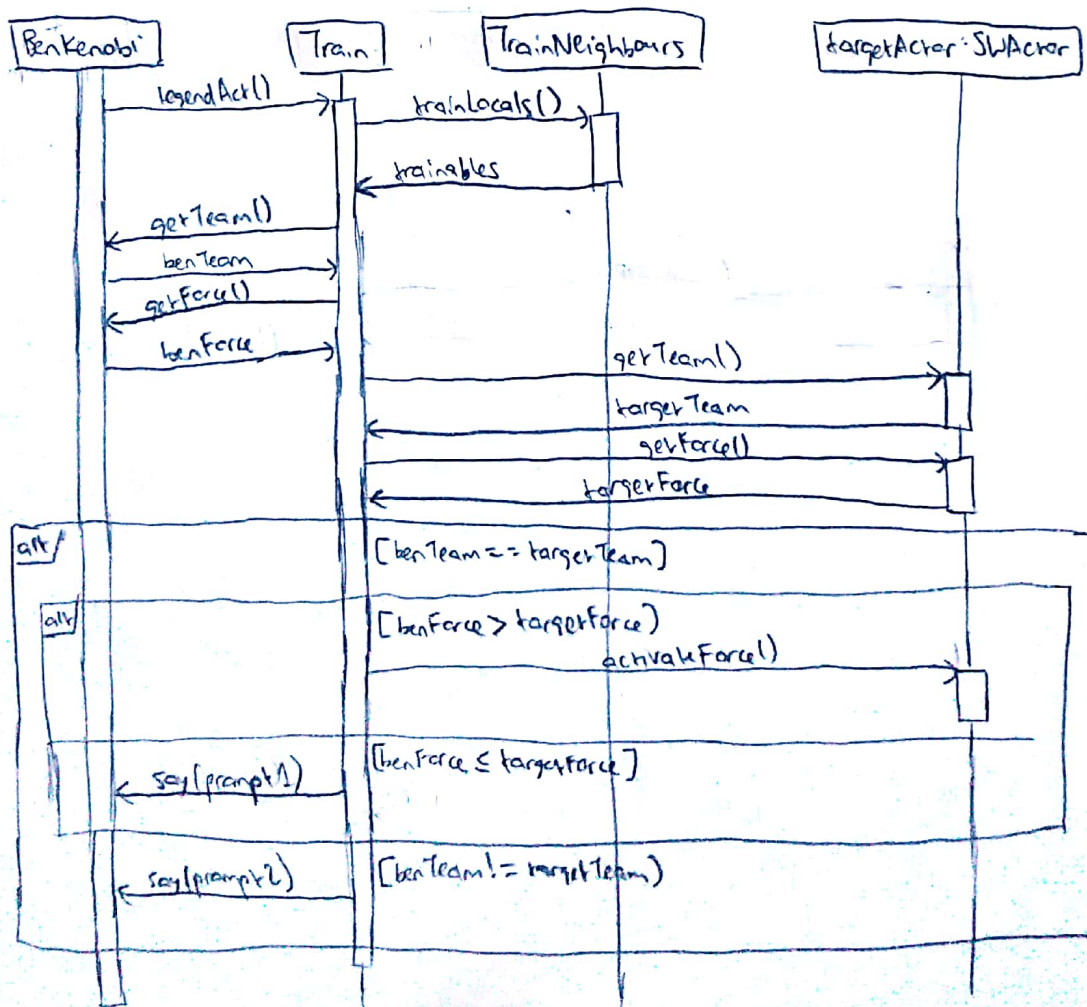 BenKenobi
Train
TrainNeighbours
targetActor:SWActor
legendAct()
trainLocals()
trainables
getTeam()
benTeam
getForce()
benForce
getTeam()
targetTeam
getForce()
targetForce
alt
[benTeam == targetTeam]
alt
[benForce > targetForce)
activateForce()
[benForce ≤ targetForce]
say(prompt1)
[benTeam != targetTeam)
say(prompt2)